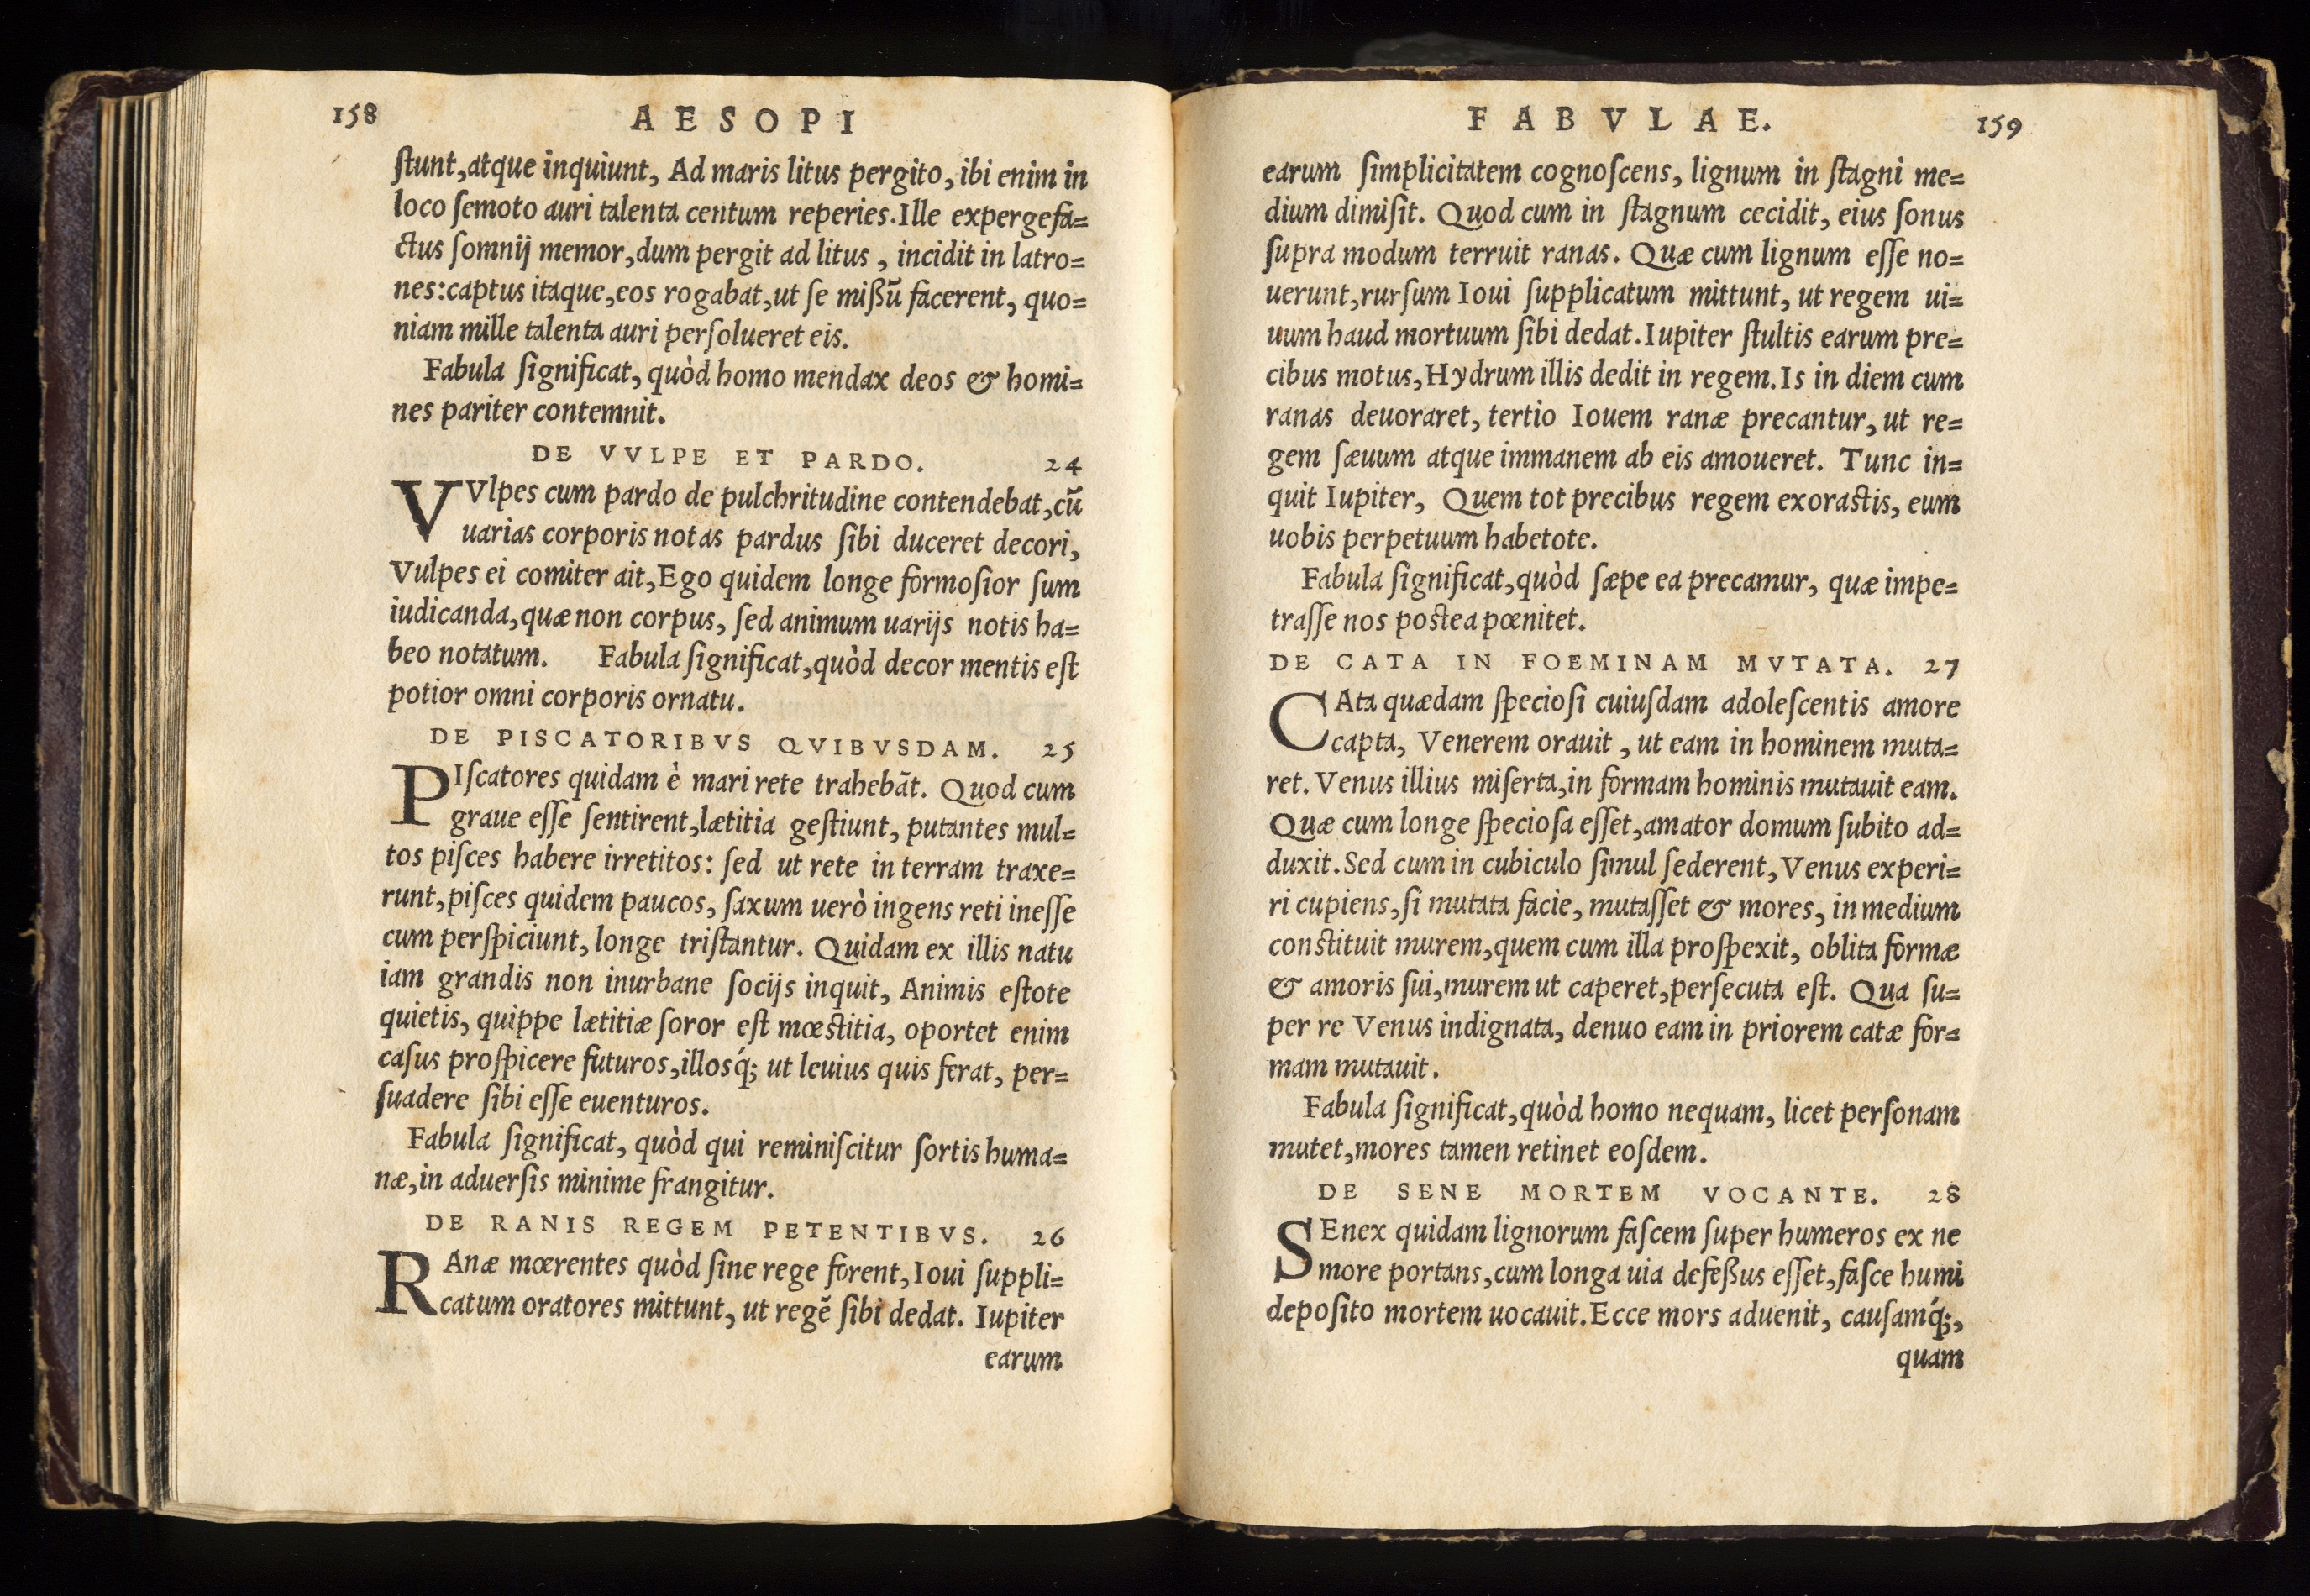 158 AESOPI
ſtunt, atque inquiunt, Ad maris litus pergito, ibi enim in
loco ſemoto auri talenta centum reperies. Ille expergefa=
ctus ſomnij memor, dum pergit ad litus, incidit in latro=
nes: captus itaque, eos rogabat, ut ſe mißū facerent, quo=
niam mille talenta auri perſolueret eis.
Fabula ſignificat, quòd homo mendax deos & homi=
nes pariter contemnit.
DE VVLPE ET PARDO. 24
VVlpes cum pardo de pulchritudine contendebat, cū
uarias corporis notas pardus ſibi duceret decori,
Vulpes ei comiter ait, Ego quidem longe formoſior ſum
iudicanda, quæ non corpus, ſed animum uarijs notis ha=
beo notatum. Fabula ſignificat, quòd decor mentis eſt
potior omni corporis ornatu.
DE PISCATORIBVS QVIBVSDAM. 25
PIſcatores quidam è mari rete trahebāt. Quod cum
graue eſſe ſentirent, lætitia geſtiunt, putantes mul=
tos piſces habere irretitos: ſed ut rete in terram traxe=
runt, piſces quidem paucos, ſaxum uerò ingens reti ineſſe
cum perſpiciunt, longe triſtantur. Quidam ex illis natu
iam grandis non inurbane ſocijs inquit, Animis eſtote
quietis, quippe lætitiæ ſoror eſt mœſtitia, oportet enim
caſus proſpicere futuros, illosq́; ut leuius quis ferat, per=
ſuadere ſibi eſſe euenturos.
Fabula ſignificat, quòd qui reminiſcitur ſortis huma=
næ, in aduerſis minime frangitur.
DE RANIS REGEM PETENTIBVS. 26
RAnæ mœrentes quòd ſine rege forent, Ioui ſuppli=
catum oratores mittunt, ut regē ſibi dedat. Iupiter
earum
FABVLAE. 159
earum ſimplicitatem cognoſcens, lignum in ſtagni me=
dium dimiſit. Quod cum in ſtagnum cecidit, eius ſonus
ſupra modum terruit ranas. Quæ cum lignum eſſe no=
uerunt, rurſum Ioui ſupplicatum mittunt, ut regem ui=
uum haud mortuum ſibi dedat. Iupiter ſtultis earum pre=
cibus motus, Hydrum illis dedit in regem. Is in diem cum
ranas deuoraret, tertio Iouem ranæ precantur, ut re=
gem ſæuum atque immanem ab eis amoueret. Tunc in=
quit Iupiter, Quem tot precibus regem exoraſtis, eum
uobis perpetuum habetote.
Fabula ſignificat, quòd ſæpe ea precamur, quæ impe=
traſſe nos poſtea pœnitet.
DE CATA IN FOEMINAM MVTATA. 27
CAta quædam ſpecioſi cuiuſdam adoleſcentis amore
capta, Venerem orauit, ut eam in hominem muta=
ret. Venus illius miſerta, in formam hominis mutauit eam.
Quæ cum longe ſpecioſa eſſet, amator domum ſubito ad=
duxit. Sed cum in cubiculo ſimul ſederent, Venus experi=
ri cupiens, ſi mutata facie, mutaſſet & mores, in medium
conſtituit murem, quem cum illa proſpexit, oblita formæ
& amoris ſui, murem ut caperet, perſecuta eſt. Qua ſu=
per re Venus indignata, denuo eam in priorem catæ for=
mam mutauit.
Fabula ſignificat, quòd homo nequam, licet perſonam
mutet, mores tamen retinet eoſdem.
DE SENE MORTEM VOCANTE. 28
SEnex quidam lignorum faſcem ſuper humeros ex ne
more portans, cum longa uia defeßus eſſet, faſce humi
depoſito mortem uocauit. Ecce mors aduenit, cauſamq́;,
quam